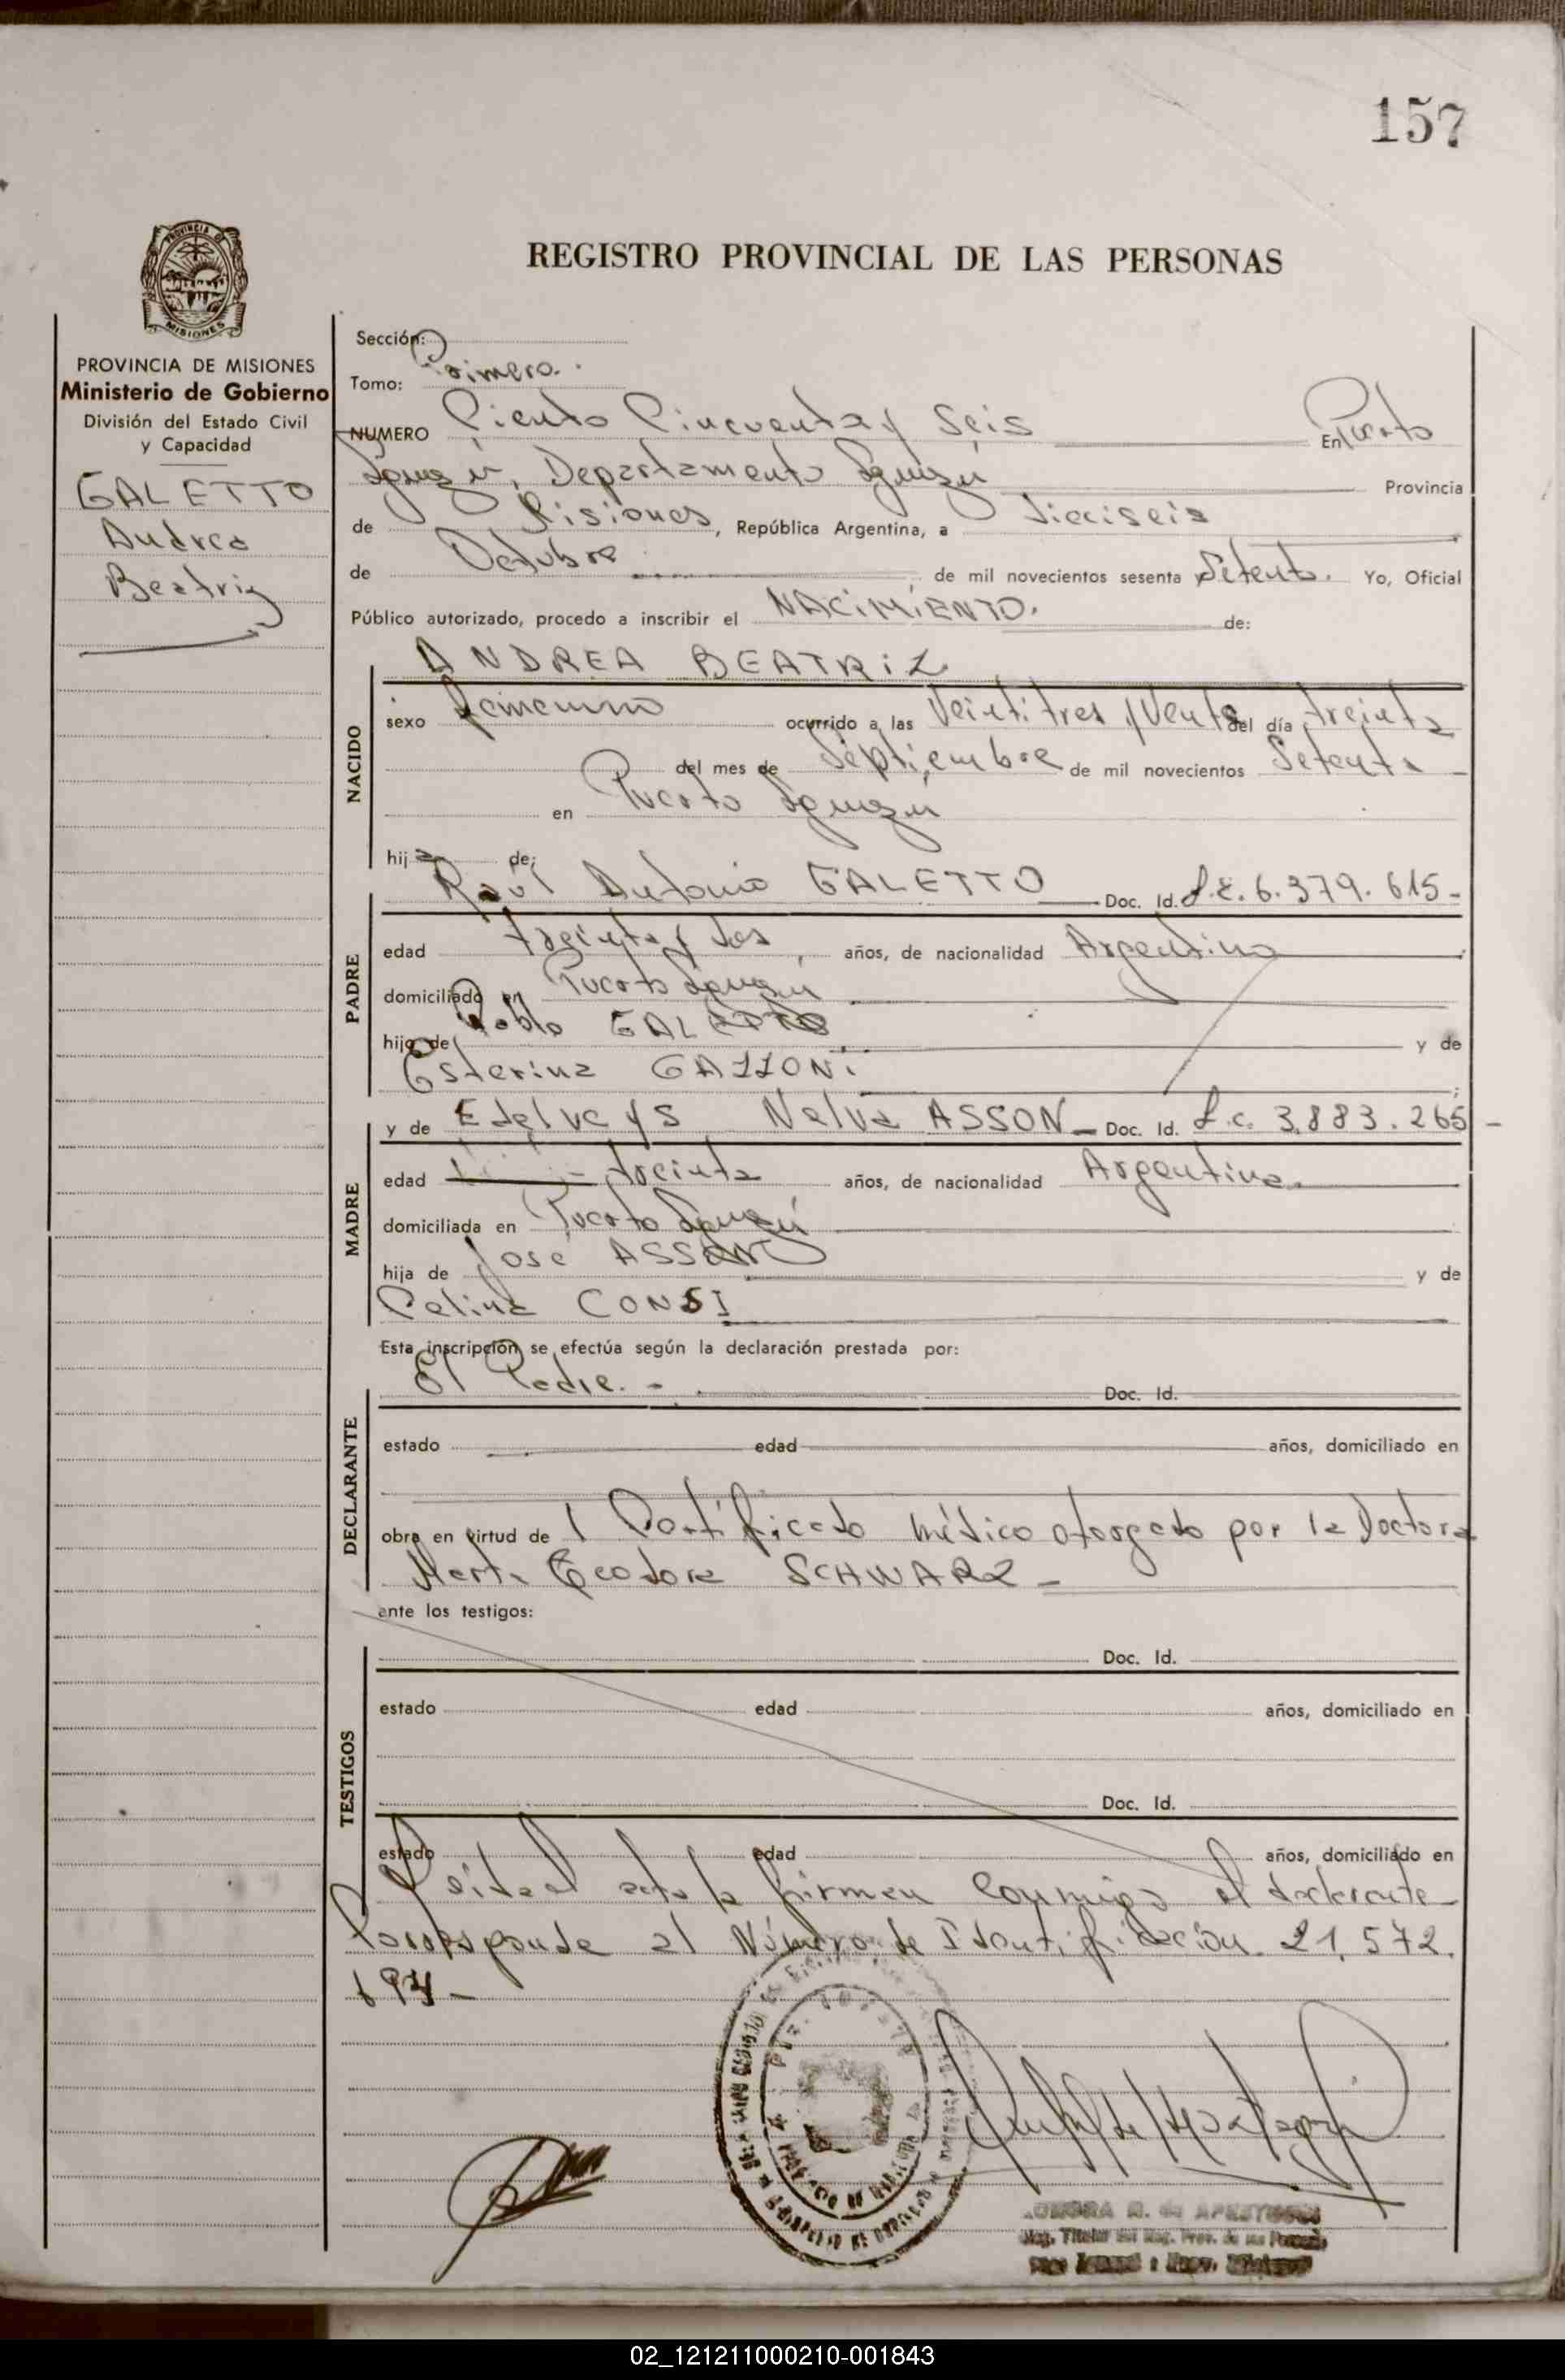 157
REGISTRO PROVINCIAL DE LAS PERSONAS
PROVINCIA DE MISIONES
Ministerio de Gobierno
División del Estado Civil
y Capacidad
GALETTO
Andrea
Beatriz
Sección:
Tomo: Primero.
NUMERO Ciento Cincuenta y Seis En Puerto
Iguazú, Departamento Iguazú Provincia
de Misiones, República Argentina, a dieciseis
de Octubre de mil novecientos sesenta Setenta. Yo, Oficial
Público autorizado, procedo a inscribir el NACIMIENTO. de:
ANDREA BEATRIZ
NACIDO
sexo femenino ocurrido a las Veintitres y Veinte del día treinta
del mes de Septiembre de mil novecientos Setenta
en Puerto Iguazú
hija de:
Raúl Antonio GALETTO Doc. Id. L.E. 6.379.615-
PADRE
edad treinta y dos años, de nacionalidad Argentino
domiciliado en Puerto Iguazú
hijo de Pablo GALETTO y de
Esterina GAZZONi
y de Edelveys Nelva ASSON Doc. Id. L.C. 3.883.265-
MADRE
edad treinta años, de nacionalidad Argentina
domiciliada en Puerto Iguazú
hija de José ASSON y de
Celina CONSI
Esta inscripción se efectúa según la declaración prestada por:
El Padre.- Doc. Id.
DECLARANTE
estado edad años, domiciliado en
obra en virtud de 1 Certificado médico otorgado por la Doctora
Marta Teodora SCHWARZ-
ante los testigos:
Doc. Id.
TESTIGOS
estado edad años, domiciliado en
Doc. Id.
estado edad años, domiciliado en
Leída el acta la firman conmigo el declarante
Corresponde al Número de Identificación 21.572.
194-
02_121211000210-001843